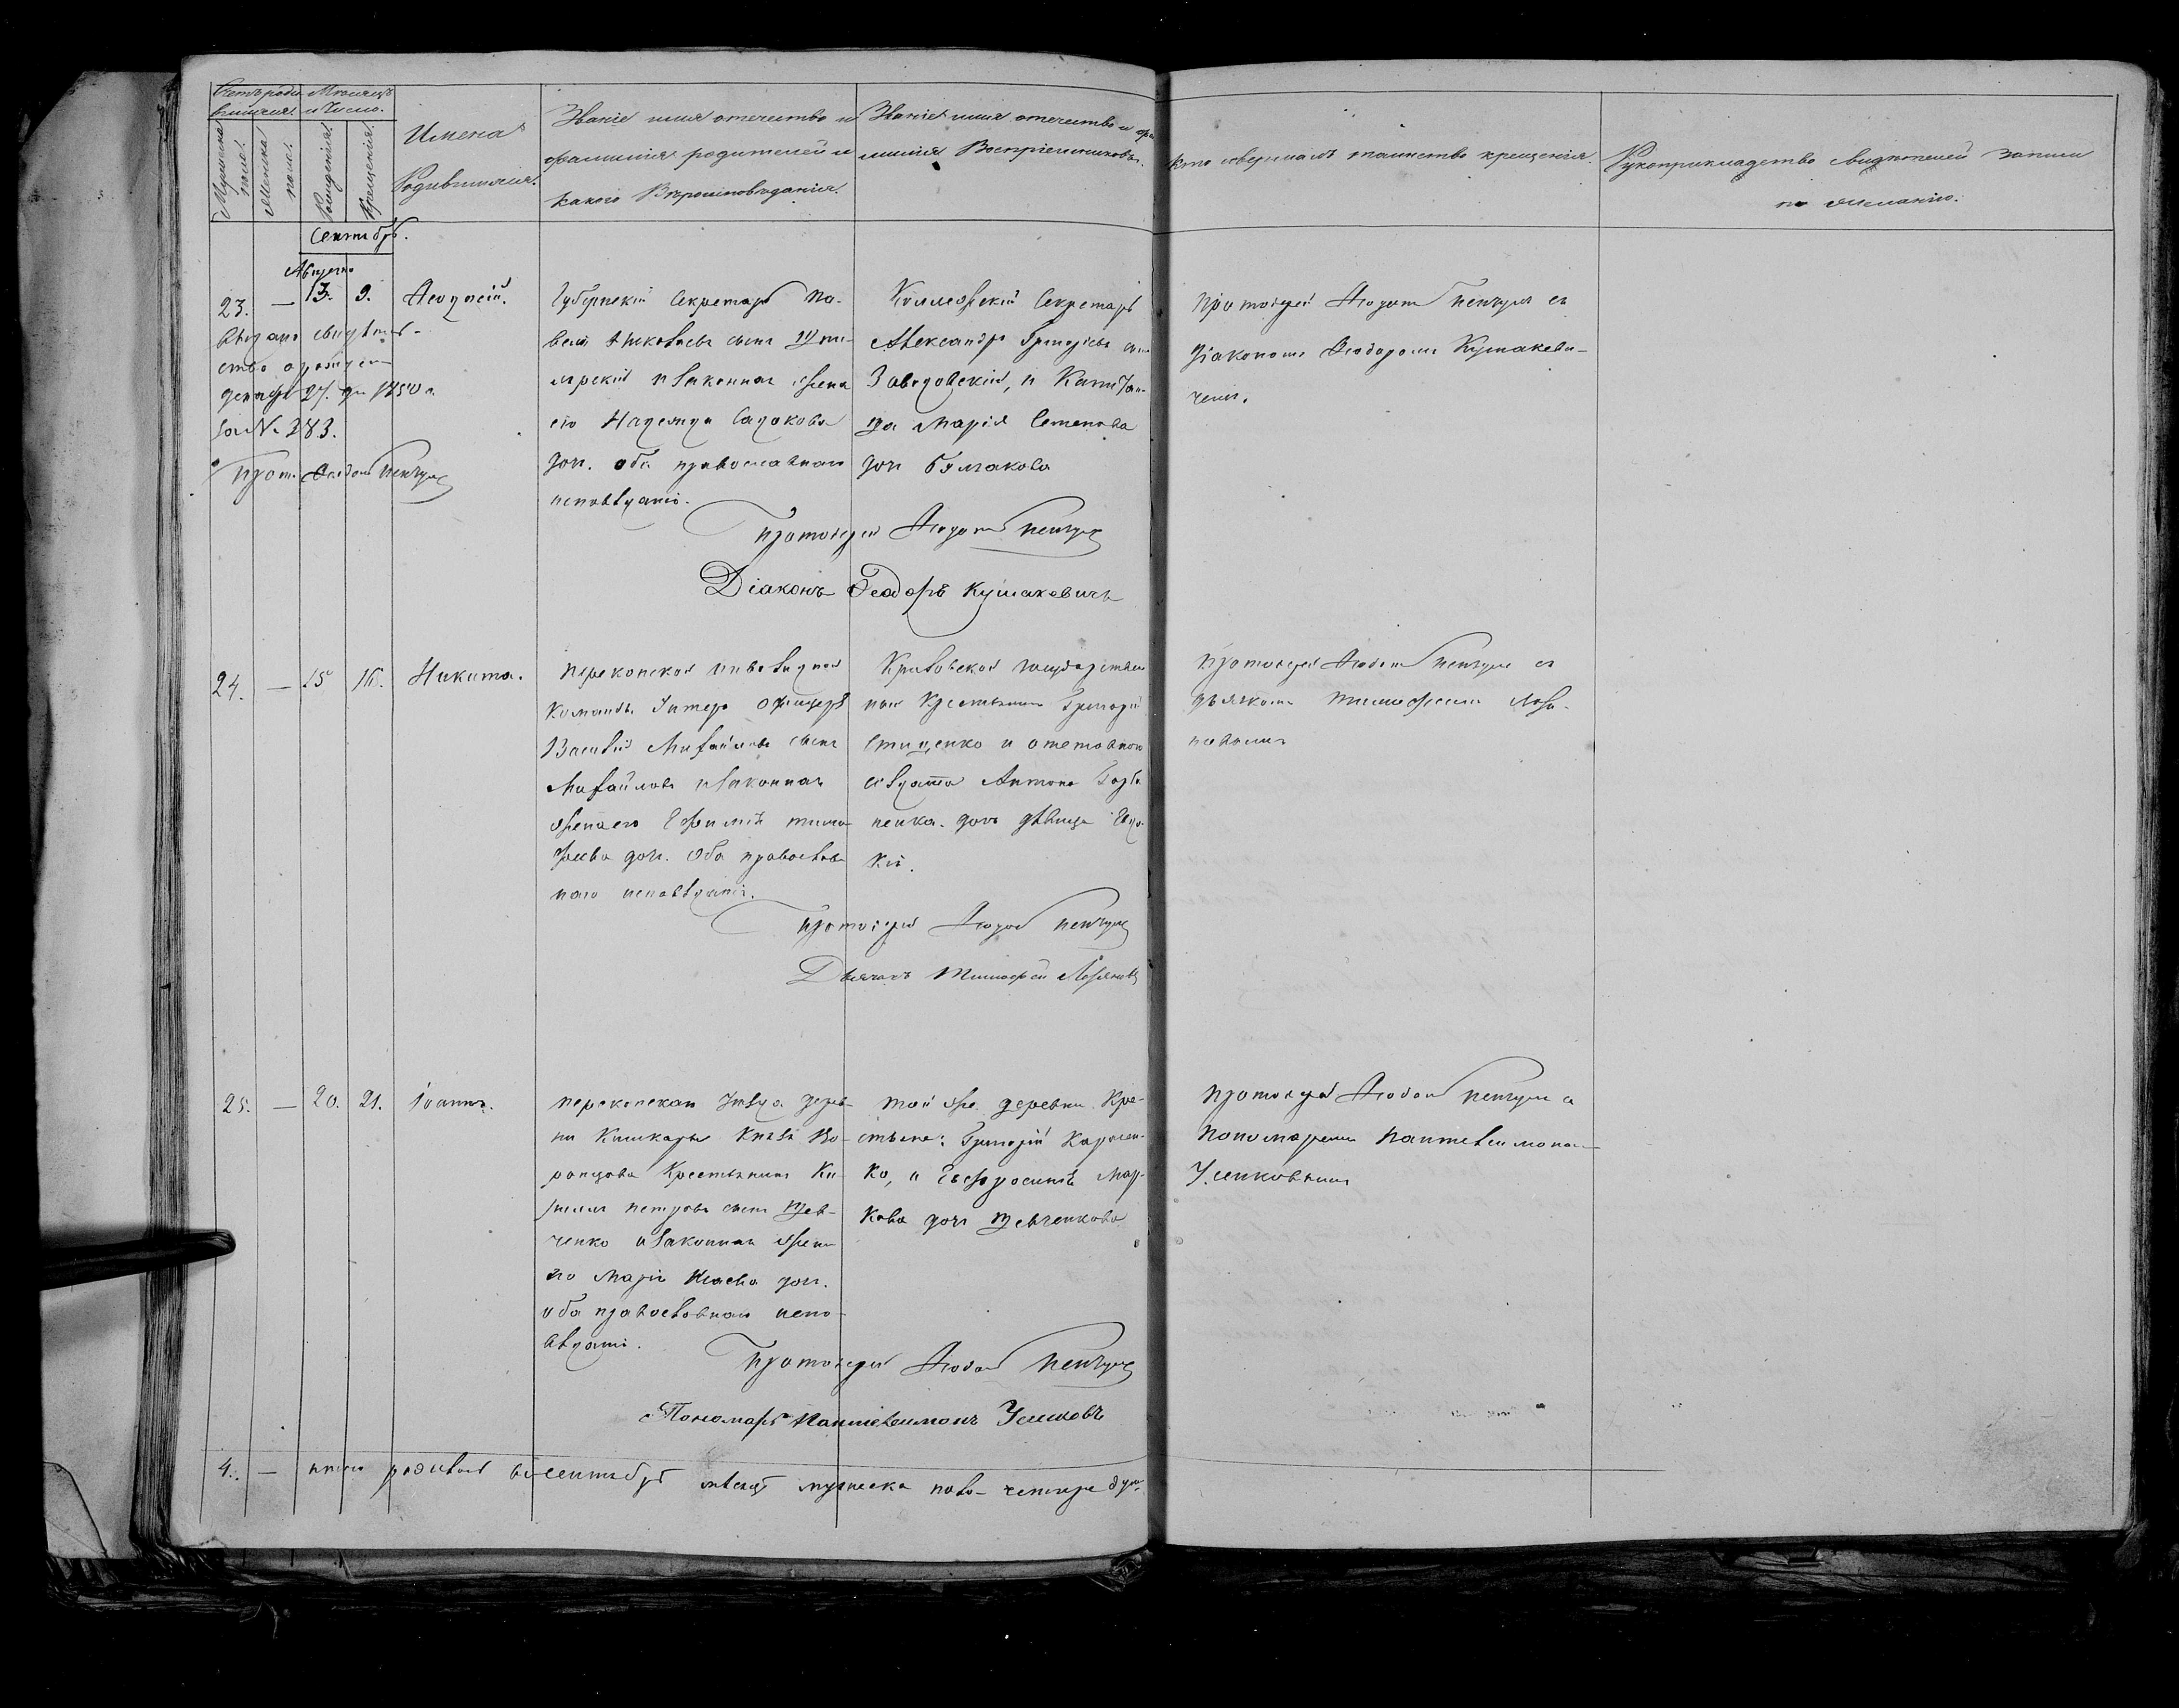 Счетъ роди
вшихся.
Мѣсяцъ
и Число.
Мужеска
пола.
Женска
пола.
Рожденія.
Крещенія.
Имена
Родившихся.
Званіе имя отечество и
фамилія родителей и
какого Вѣроисповѣданія.
Званіе имя отечество и фа
милія Воспріемниковъ.
Кто совершалъ таинство крещенія.
Рукоприкладство свидѣтелей записи
по желанію.
Сентябрь.
Августа
23. — 13. 9.
Выдано свидѣтель-
ство о рожден
декабря 27. дн 1850 г.
за № 283.
Прот. Феодот Пенчул
Губернскій Секретарь Па-
велъ Николаевъ сынъ
и законная жена
его Надежда Садокова
доч. оба православнаго
исповѣданія.
Коллежскій Секретарь
Александръ Григорьевъ сынъ
Завадовскій, и Капитан-
ша Марія Семенова
доч Булгакова
Протоіерей Феодот Пенчул съ
Діакономъ Феодоромъ Кушакеви-
чемъ.
Протоіерей Феодот Пенчул
Діаконъ Феодоръ Кушакевичъ
24. — 15 16. Никита.
Перекопской инвалидной
команды Унтеръ офицеръ
Василій Михайловъ сынъ
Михайловъ и законная
жена его Ефимія тимо
феева доч. Оба православ
наго исповѣданія.
Крестьянинъ Григорій
Стищенко и отставного
солдата Антона Горба
ненка. дочь дѣвица Евдо-
кія.
Протоіерей Феодот Пенчул съ
дьячкомъ Тимофеемъ
Протоіерей Феодот Пенчул
Дьячокъ Тимофей
25. — 20. 21. Іоаннъ.
перекопскаго Уѣзда дерев-
ни Кишкары Князя Во-
ронцова Крестьянинъ Ки-
рилл петровъ сынъ Шев-
ченко и законная жена
его Марія доч.
оба православнаго испо-
вѣданія.
той же деревни Кре-
стьяне: Григорій Карпен-
ко, и Евфросинія Мар-
кова доч Шевченкова
Протоіерей Феодот Пенчул с
Пономаремъ Пантелеимоном
Усенковымъ
Протоіерей Феодот Пенчул
Пономарь Пантелеимонъ Усенковъ
4. — итого родилось въ сентябрѣ мѣсяцѣ мужеска пола — четыре душ.